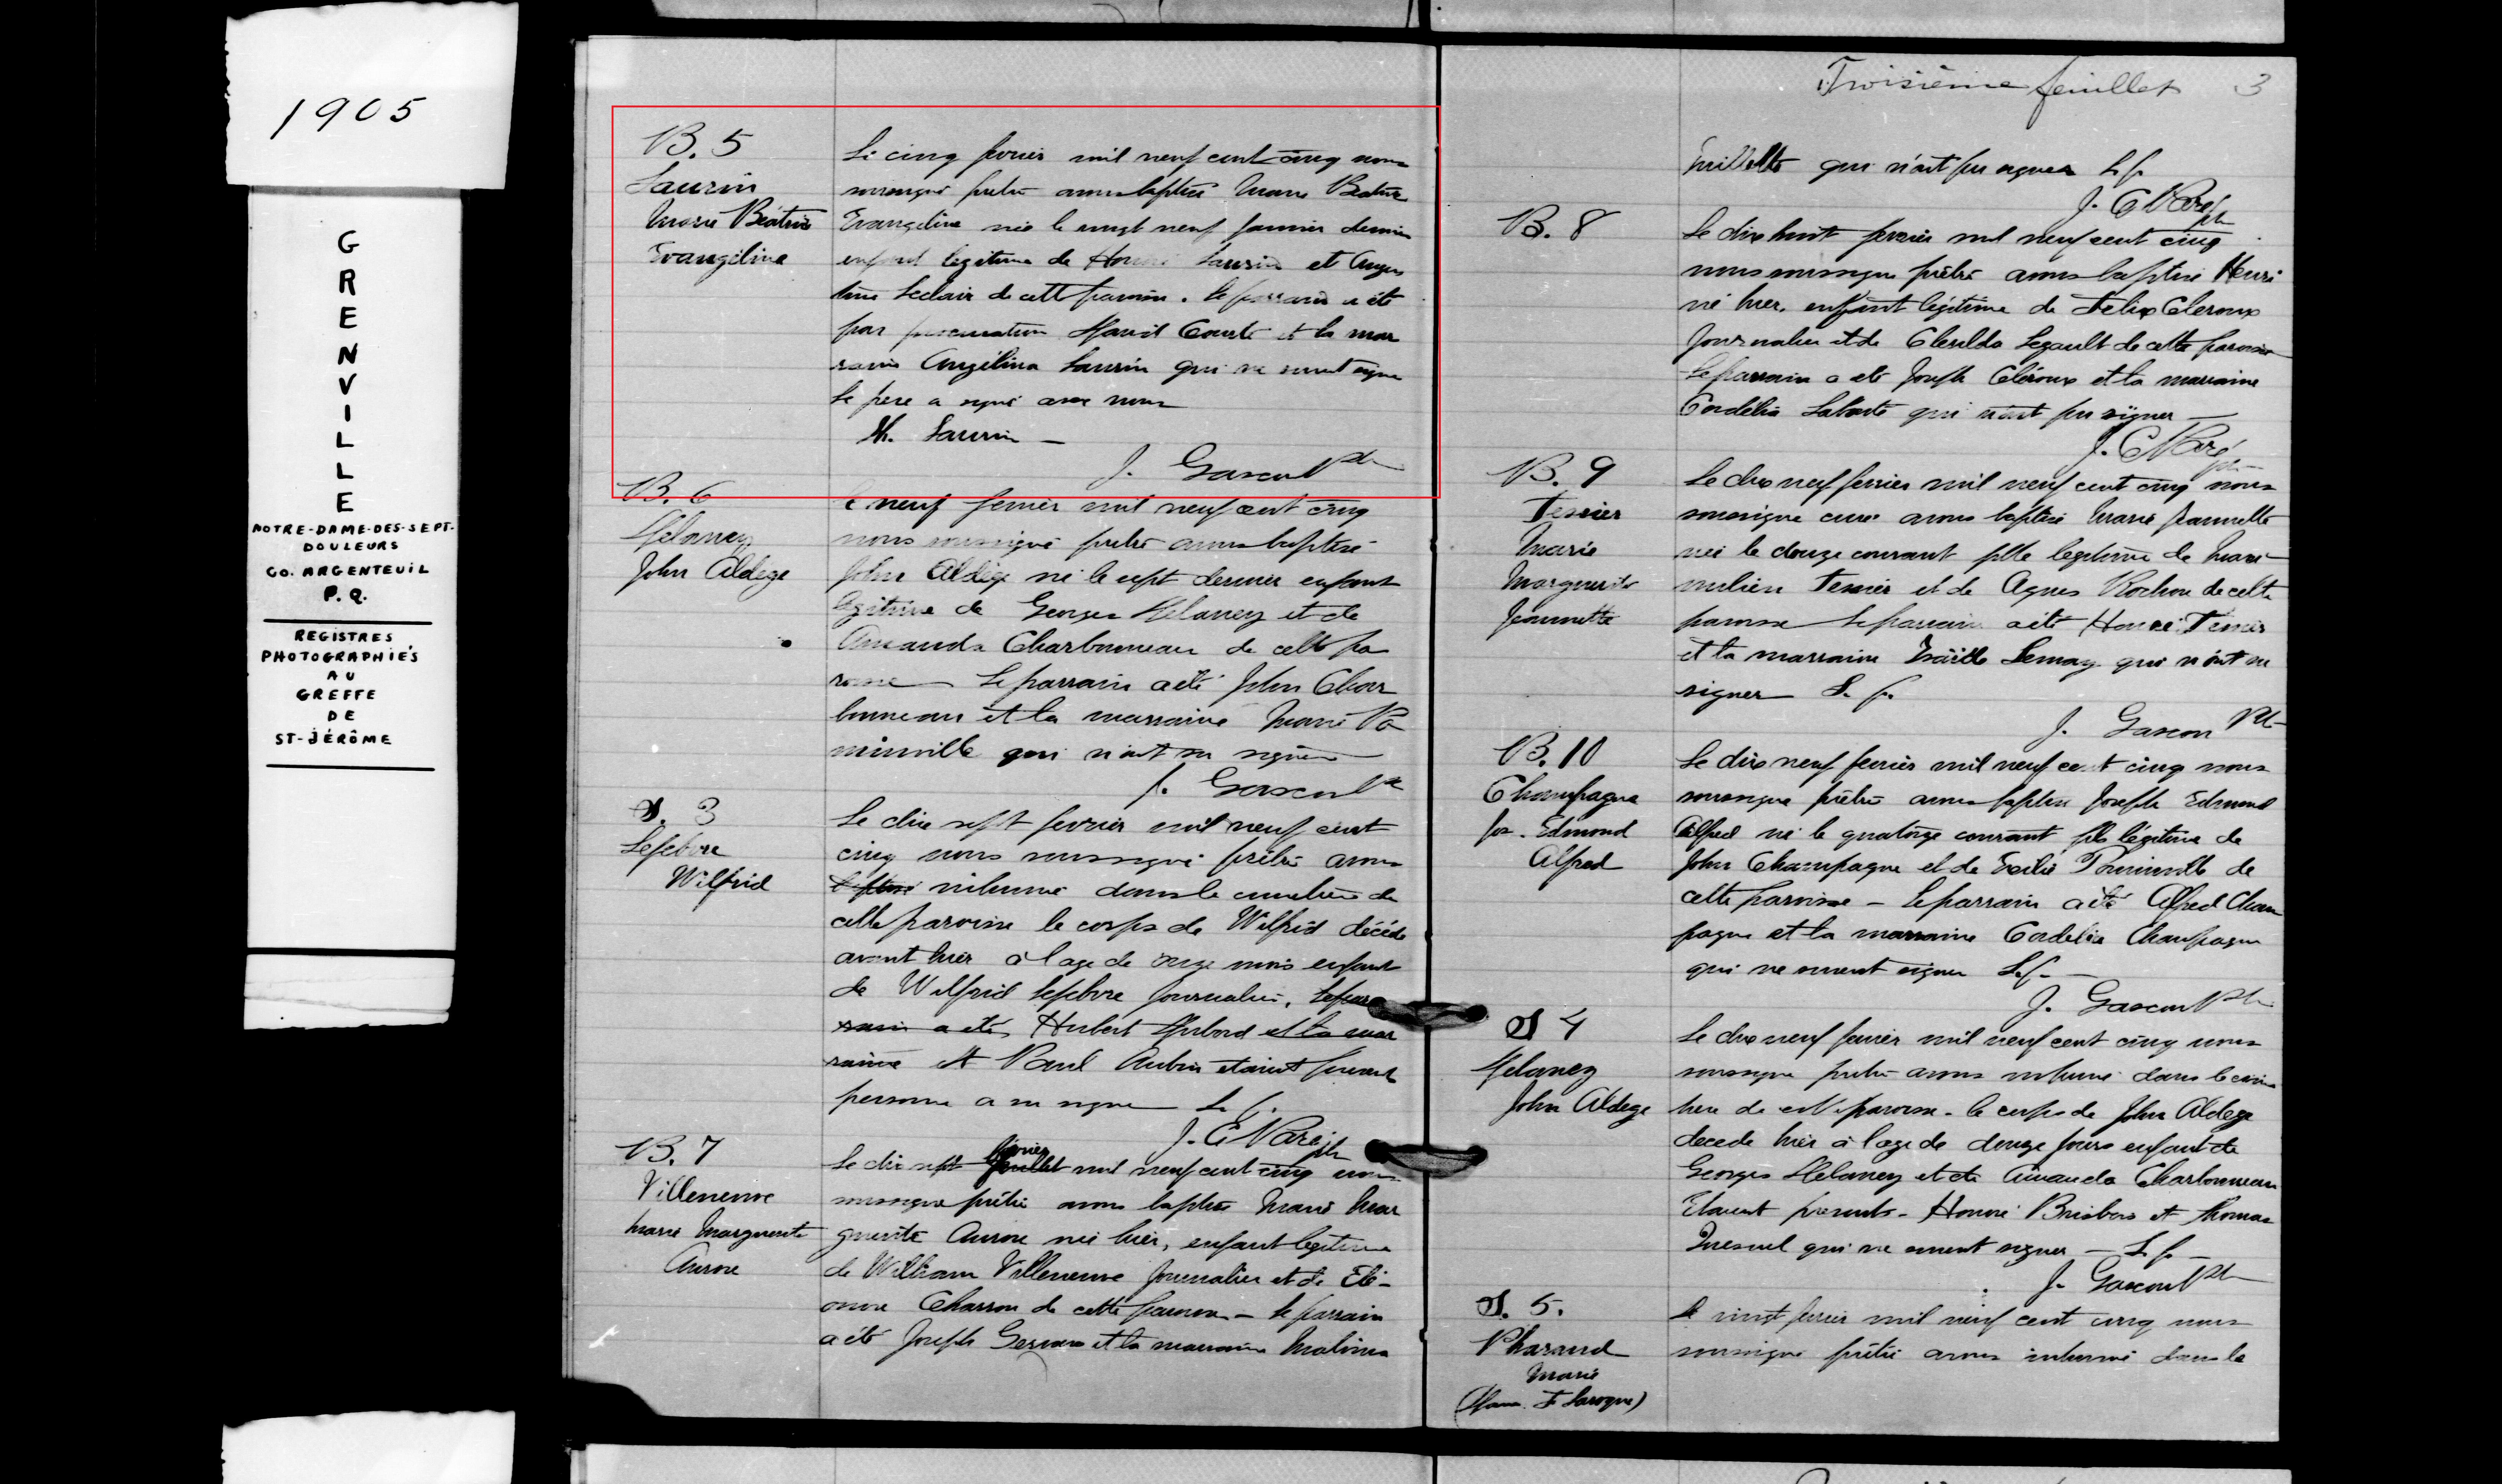 1905
GRENVILLE
NOTRE-DAME-DES-SEPT-
DOULEURS
CO. ARGENTEUIL
P. Q.
REGISTRES
PHOTOGRAPHIÉS
AU
GREFFE
DE
ST-JÉRÔME
B. 5
Laurin
Marie Béatrice
Evangeline
Le cinq février mil neuf cent cinq nous
soussigné prêtre avons baptisé Marie Béatrice
Evangeline née le vingt neuf janvier dernier
enfant legitime de Laurin et Augus
tine Leclair de cette paroisse. Le parrain a été
par procuration David Courte et la mar
raine Angélina Laurin qui ne savent signer
Le père a signé avec nous
H. Laurin —
J. Gascon Ptr
B. 6
Delaney
John Aldege
Le neuf fevrier mil neuf cent cinq
nous soussigné prêtre avons baptisé
John Aldège né le sept dernier enfant
légitime de Georges Delaney et de
Amanda Charbonneau de cette pa
roisse — Le parrain a été John Char
bonneau et la marraine Marie Po
minville qui n'ont su signer —
J. Gascon Ptr
S. 3
Lefebvre
Wilfrid
Le dix sept fevrier mil neuf cent
cinq nous soussigné prêtre avons
baptisé inhumé dans le cimetière de
cette paroisse le corps de Wilfrid décédé
avant hier à l'age de onze mois enfant
de Wilfrid Lefebvre journalier, Le par
rain a été Hubert et la mar
raine et Paul Aubin étaient présents
personne a su signer L. f.
J. C. Naré ptr
B. 7
Villeneuve
Marie Marguerite
Aurore
Le dix sept juillet février mil neuf cent cinq nous
soussigné prêtre avons baptisé Marie Mar
guerite Aurore née hier, enfant legitime
de William Villeneuve journalier et de Elé-
onore Charron de cette paroisse — le parrain
a été Joseph et la marraine Malvina
Troisième feuillet 3
qui n'ont pu signer L. f.
J. C. Naré ptr
B. 8
Le dix huit fevrier mil neuf cent cinq
nous soussigné prêtre avons baptisé Henri
né hier, enfant légitime de Felix Cleroux
Journalier et de Clerilda Legault de cette paroisse
Le parrain a été Joseph Cléroux et la marraine
Cordélia qui n'ont pu signer —
J. C. Naré ptr
B. 9
Tessier
Marie
Marguerite
Jeannette
Le dix neuf fevrier mil neuf cent cinq nous
soussigné curé avons baptisé Marie Jeannette
née le douze courant fille legitime de Maxi-
milien Tessier et de Agnes Rochon de cette
paroisse Le parrain a été Honoré Tessier
et la marraine Lemay qui n'ont su
signer L. f.
J. Gascon Ptr
B. 10
Champagne
Jos. Edmond
Alfred
Le dix neuf fevrier mil neuf cent cinq nous
soussigné prêtre avons baptisé Joseph Edmond
Alfred né le quatorze courant fils légitime de
John Champagne et de Exilie Pominville de
cette paroisse — Le parrain a été Alfred Cham
pagne et la marraine Cordélia Champagne
qui ne savent signer L. f. —
J. Gascon Ptr
S 4
Delaney
John Aldege
Le dix neuf fevrier mil neuf cent cinq nous
soussigné prêtre avons inhumé dans le cime
tiere de cette paroisse — le corps de John Aldege
decedé hier à l'age de douze jours enfant de
Georges Delaney et de Amanda Charbonneau
Etaient présents — Honoré Brisbois et Thomas
qui ne savent signer — L. f. —
J. Gascon Ptr
S. 5.
Pharand
Marie
(Dame F. Laroque)
Le vingt fevrier mil neuf cent cinq nous
soussigné prêtre avons inhumé dans le